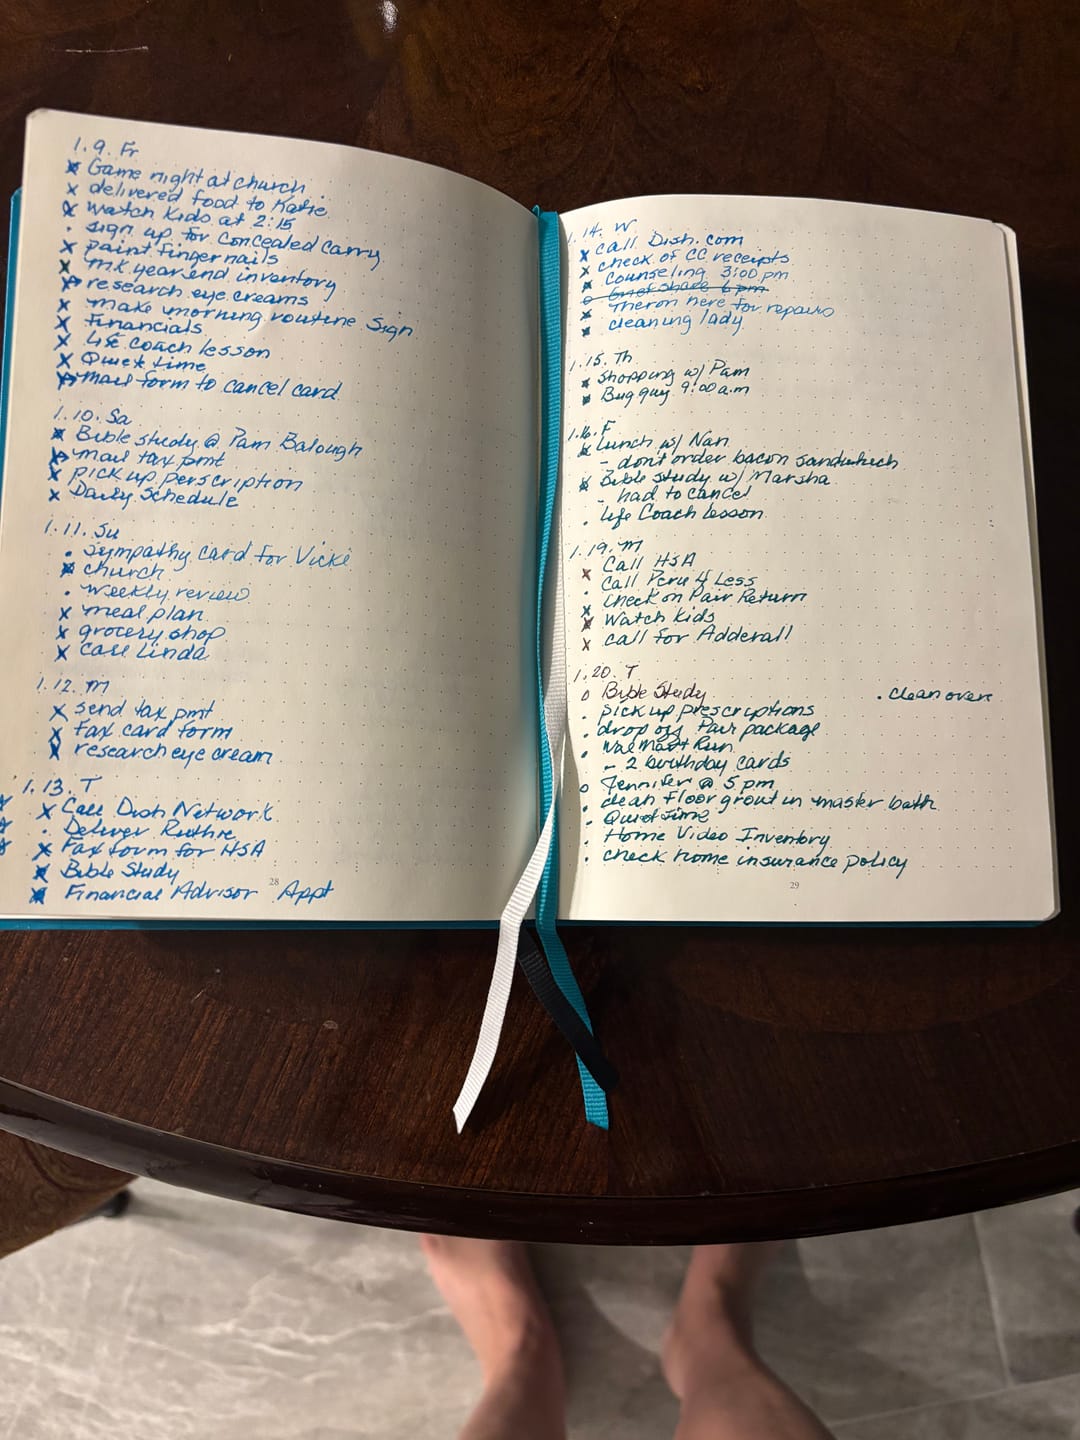 1.9. Fr
x Game night at church
x delivered food to Katie
x watch kids at 2:15
· sign up for concealed carry
x paint fingernails
x MK year end inventory
x research eye creams
x make morning routine sign
x Financials
x Life coach lesson
x Quiet time
x mail form to cancel card
1.10. Sa
x Bible study @ Pam Balough
x mail tax pmt
x pick up perscription
x Daily Schedule
1.11. Su
· Sympathy card for Vicki
x church
· weekly review
x meal plan
x grocery shop
x call Linda
1.12. M
x send tax pmt
x Fax card form
x research eye cream
1.13. T
x Call Dish Network
· Deliver Ruthie
x Fax form for HSA
x Bible Study
x Financial Advisor Appt
28
1.14. W
x call Dish.com
x check of CC receipts
x Counseling 3:00 pm
o Grief share 6 pm
x Theron here for repairs
x cleaning lady
1.15. Th
x Shopping w/ Pam
x Bug guy 9:00 a.m
1.16. F
x Lunch w/ Nan
- don't order bacon sandwhich
x Bible study w/ Marsha
- had to cancel
· Life Coach lesson
1.19. M
x Call HSA
· Call Peru 4 Less
x Check on Pair Return
x Watch kids
x call for Adderall
1.20. T
o Bible Study
· clean oven
· pick up prescriptions
· drop off Pair package
· Walmart Run
- 2 birthday cards
o Jennifer @ 5 pm
· clean floor grout in master bath
· Quiet time
· Home Video Inventory
· check home insurance policy
29